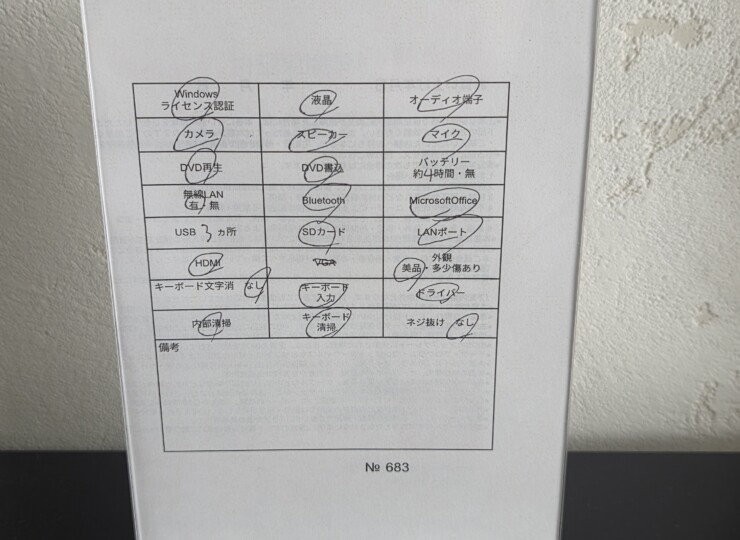 Windows
ライセンス認証
液晶
オーディオ端子
カメラ
スピーカー
マイク
DVD再生
DVD書込
バッテリー
約4時間・無
無線LAN
有・無
Bluetooth
MicrosoftOffice
USB 3 ヵ所
SDカード
LANポート
HDMI
VGA
外観
美品・多少傷あり
キーボード文字消 なし
キーボード
入力
ドライバー
内部清掃
キーボード
清掃
ネジ抜け なし
備考
№ 683